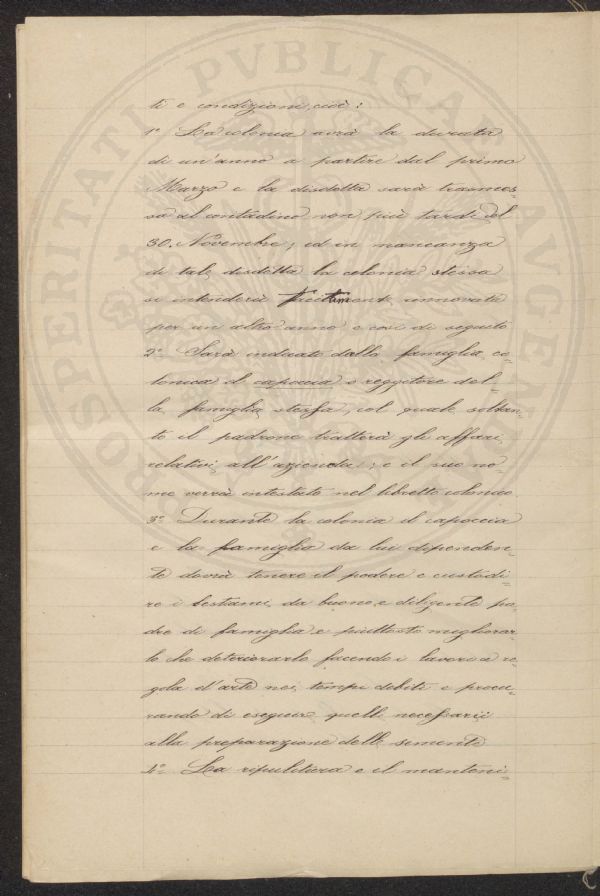 ti e condizioni, cioè:
1° La colonia avrà la durata
di un'anno a partire dal primo
Marzo e la disdetta sarà trasmes=
sa al contadino non più tardi del
30. Novembre; ed in mancanza
di tale disdetta la colonia stessa
si intenderà tacitamente rinnovata
per un altro anno e così di seguito
2° Sarà indicato dalla famiglia co=
lonica il capoccia o reggitore del=
la famiglia stessa, col quale soltan=
to il padrone tratterà gli affari
relativi all'azienda; e il suo no=
me verrà intestato nel libretto colonico.
3° Durante la colonia il capoccia
e la famiglia da lui dipenden=
te dovrà tenere il podere e custodi=
re i bestiami da buono e diligente pa=
dre di famiglia e piuttosto migliorar=
lo che deteriorarlo facendo i lavori a re=
gola d'arte nei tempi debiti e procu=
rando di eseguire quelli necessarii
alla preparazione delle semente
4° La ripulitura e il manteni=
PROSPERITATI PVBLICAE AVGENDAE